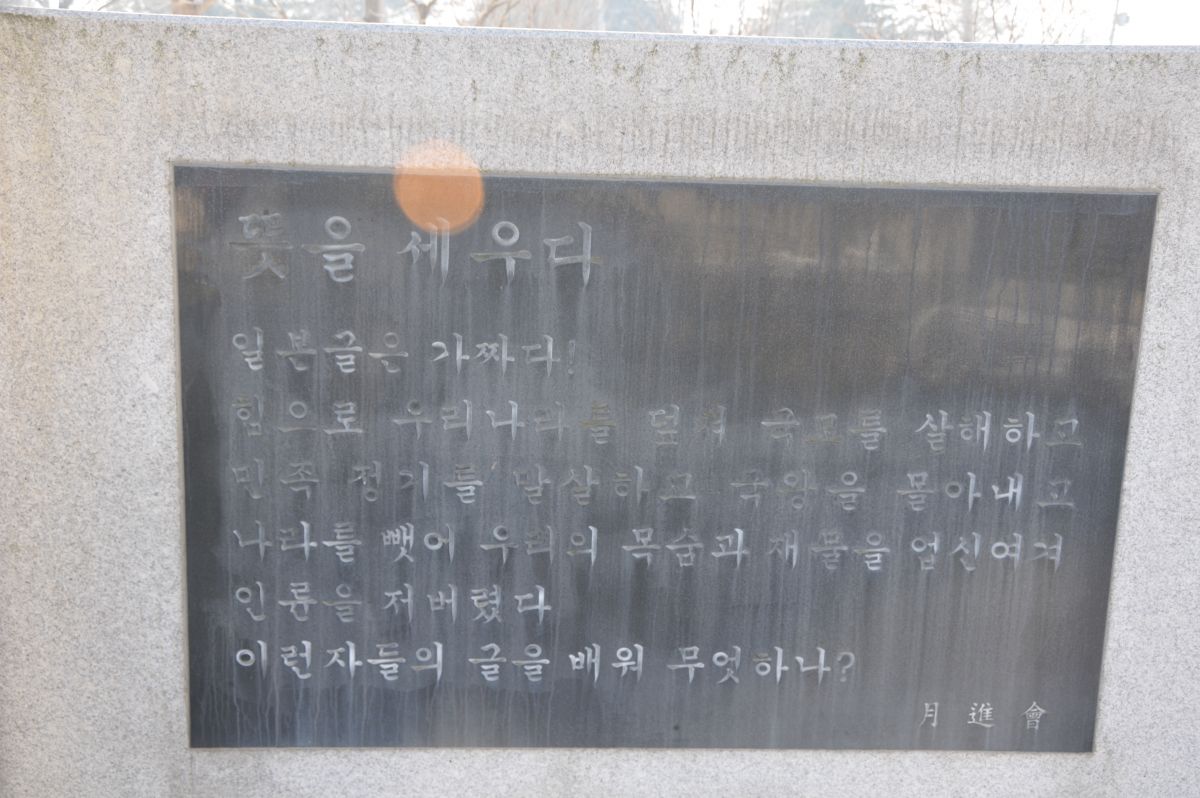 뜻을 세우다
일본글은 가짜다!
힘으로 우리나라를 덮쳐 국모를 살해하고
민족 정기를 말살하고 국왕을 몰아내고
나라를 뺏어 우리의 목숨과 재물을 업신여겨
인륜을 저버렸다
이런자들의 글을 배워 무엇하나?
月進會